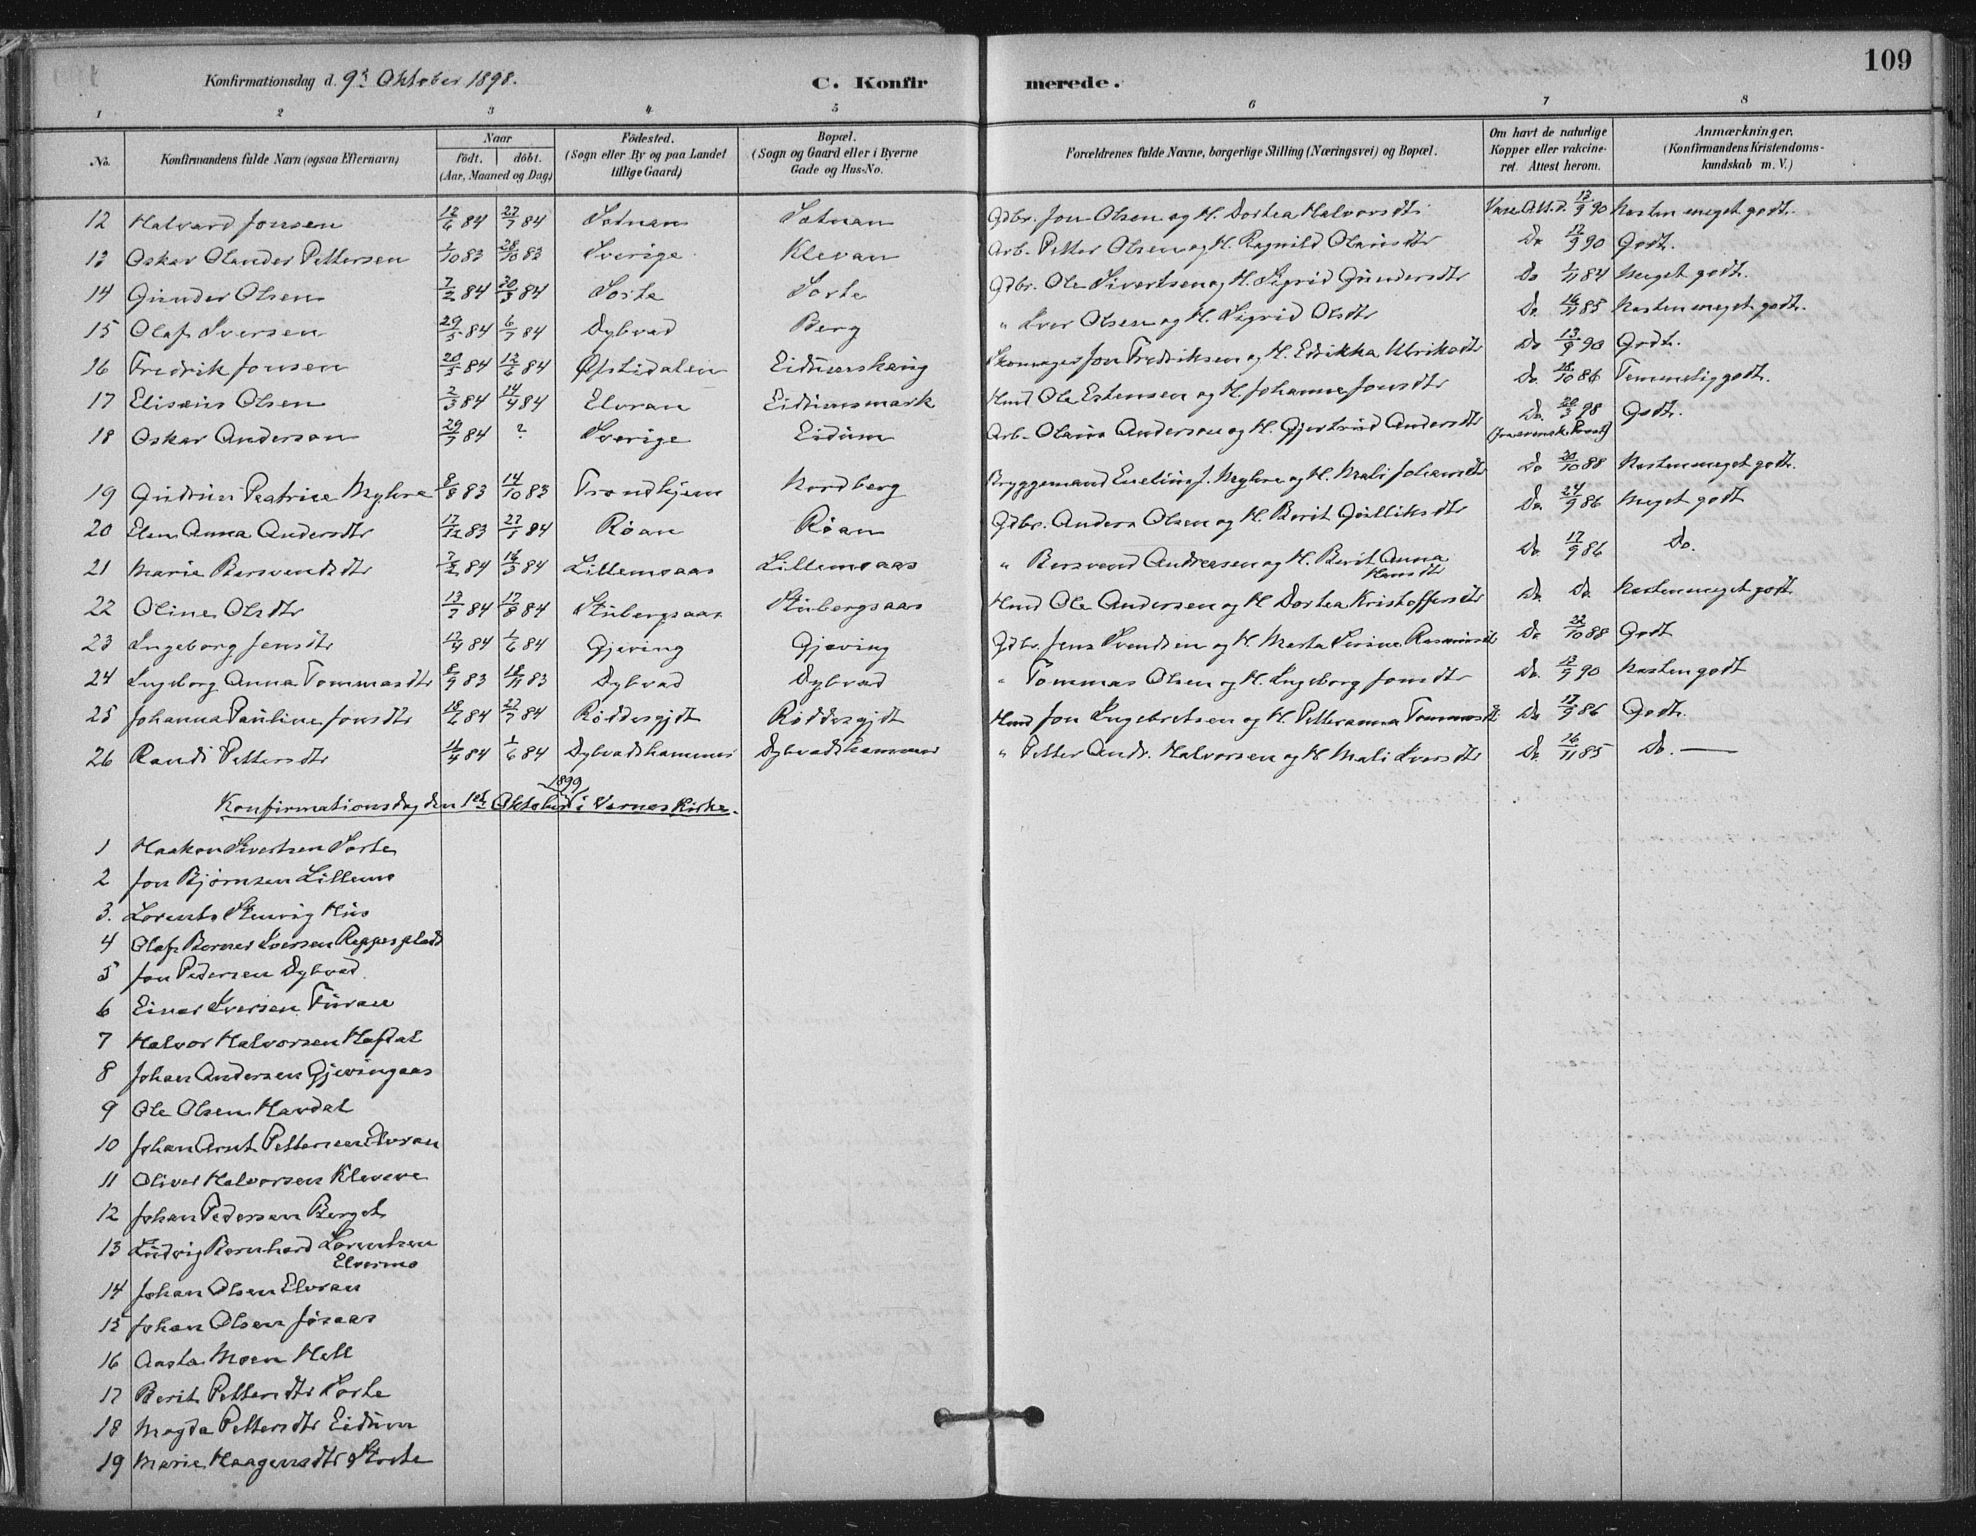 109
Konfirmationsdag d. 9de Oktober 1898. C. Konfirmerede.
1 2 3 4 5 6 7 8
No. Konfirmandens fulde Navn (ogsaa Efternavn) Naar født. døbt. (Aar, Maaned og Dag) Fødested. (Sogn eller By og paa Landet tillige Gaard) Bopæl. (Sogn og Gaard eller i Byerne Gade og Hus-No. Forældrenes fulde Navne, borgerlige Stilling (Næringsvei) og Bopæl. Om havt de naturlige Kopper eller vakcineret. Attest herom. Anmærkninger. (Konfirmandens Kristendomskundskab m. V.)
12 Halvard Jonsen 12/6 84 27/7 84 Sotnan Sotnan Gdbr. Jon Olsen og H. Dortea Halvorsdtr Vacc. Att. d. 12/9 90 Næsten meget godt.
13 Oskar Olander Pettersen 1/10 83 28/10 83 Sverige Klevan Arb. Petter Olsen og H. Ragnild Olausdtr Do 12/9 90 Godt.
14 Gunder Olsen 7/2 84 30/3 84 Sorte Sorte Gdbr. Ole Sivertsen og H. Sigrid Gundersdtr Do 1/11 84 Meget godt.
15 Olaf Iversen 29/5 84 6/7 84 Dybvad Berg " Iver Olsen og H. Sigrid Olsdtr Do. 16/11 85 Næsten meget godt.
16 Fredrik Jonsen 20/5 84 12/6 84 Øfstidalen Eidumshaug Skomager Jon Fredriksen og H. Edrikka Ulriksdtr Do 13/9 90 Godt.
17 Elisæus Olsen 2/3 84 14/4 84 Elvran Eidumsmark Hmd Ole Estensen og H. Johanna Jonsdtr Do. 18/10 86 Temmelig godt.
18 Oskar Anderson 29/7 84 ? Sverige Eidum Arb. Olaus Anderson og H. Gjertrud Andersdtr Do. 20/3 98 Godt.
(fra svensk Præst)
19 Gudrun Beatrice Myhre 8/8 83 14/10 83 Trondhjem Nordberg Bryggemand Eneling J. Myhre og H. Mali Johansdtr Do 30/10 88 Næsten meget godt.
20 Elen Anna Andersdtr 17/12 83 27/1 84 Røan Røan Gdbr. Anders Olsen og H. Berit Gulliksdtr Do. 24/9 86 Meget godt
21 Marie Bersvendsdtr 7/2 84 16/3 84 Lillemoaas Lillemoaas " Bersvend Andreasen og H. Berit Anna Hansdtr Do. 17/9 86 Do.
22 Oline Olsdtr 13/7 84 17/8 84 Stubergsaas Stubergsaas Hmd Ole Andersen og H. Dortea Kristoffersdtr Do. Do. Næsten meget godt
23 Ingeborg Jensdtr 17/4 84 1/6 84 Gjeving Gjeving Gdbr. Jens Svendsen og H. Marta Serine Rasmusdtr Do 22/10 88 Godt
24 Ingeborg Anna Tommasdtr 8/9 83 18/11 83 Dybvad Dybvad " Tommas Olsen og H. Ingeborg Jonsdtr Do. 12/9 90 Næsten godt
25 Johanna Pauline Jonsdtr 18/6 84 27/7 84 Røddesgjdt Røddesgjdt Hmd Jon Ingebretsen og H. Petteranna Tommasdtr Do 17/9 86 Godt.
26 Randi Pettersdtr 11/4 84 1/6 84 Dybvadshammer Dybvadshammer " Petter Andr. Halvorsen og H. Mali Iversdtr Do. 16/11 85 Do.
1899
Konfirmationsdag den 1ste Oktober i Værnes Kirke.
1 Haakon Sivertsen Sorte
2 Jon Bjørnsen Lillemo
3. Lorents Stenvig Hus
4 Olaf Berner Iversen Reppesplads
5 Jon Pedersen Dybvad
6 Einar Iversen Turan
7 Halvor Halvorsen Hofdal
8 Johan Andersen Gjevingaas
9 Ole Olsen Havdal
10 Johan Arnt Pettersen Elvran
11 Oliver Halvorsen Kleveve
12 Johan Pedersen Berget
13 Ludvig Bernhard Lorentsen
Elvermo
14 Johan Olsen Elvran
15 Johan Olsen Jøsaas
16 Aasta Moen Hell
17 Berit Pettersdtr Sorte
18 Magda Pettersdtr Eidum
19 Marie Haagensdtr Storte